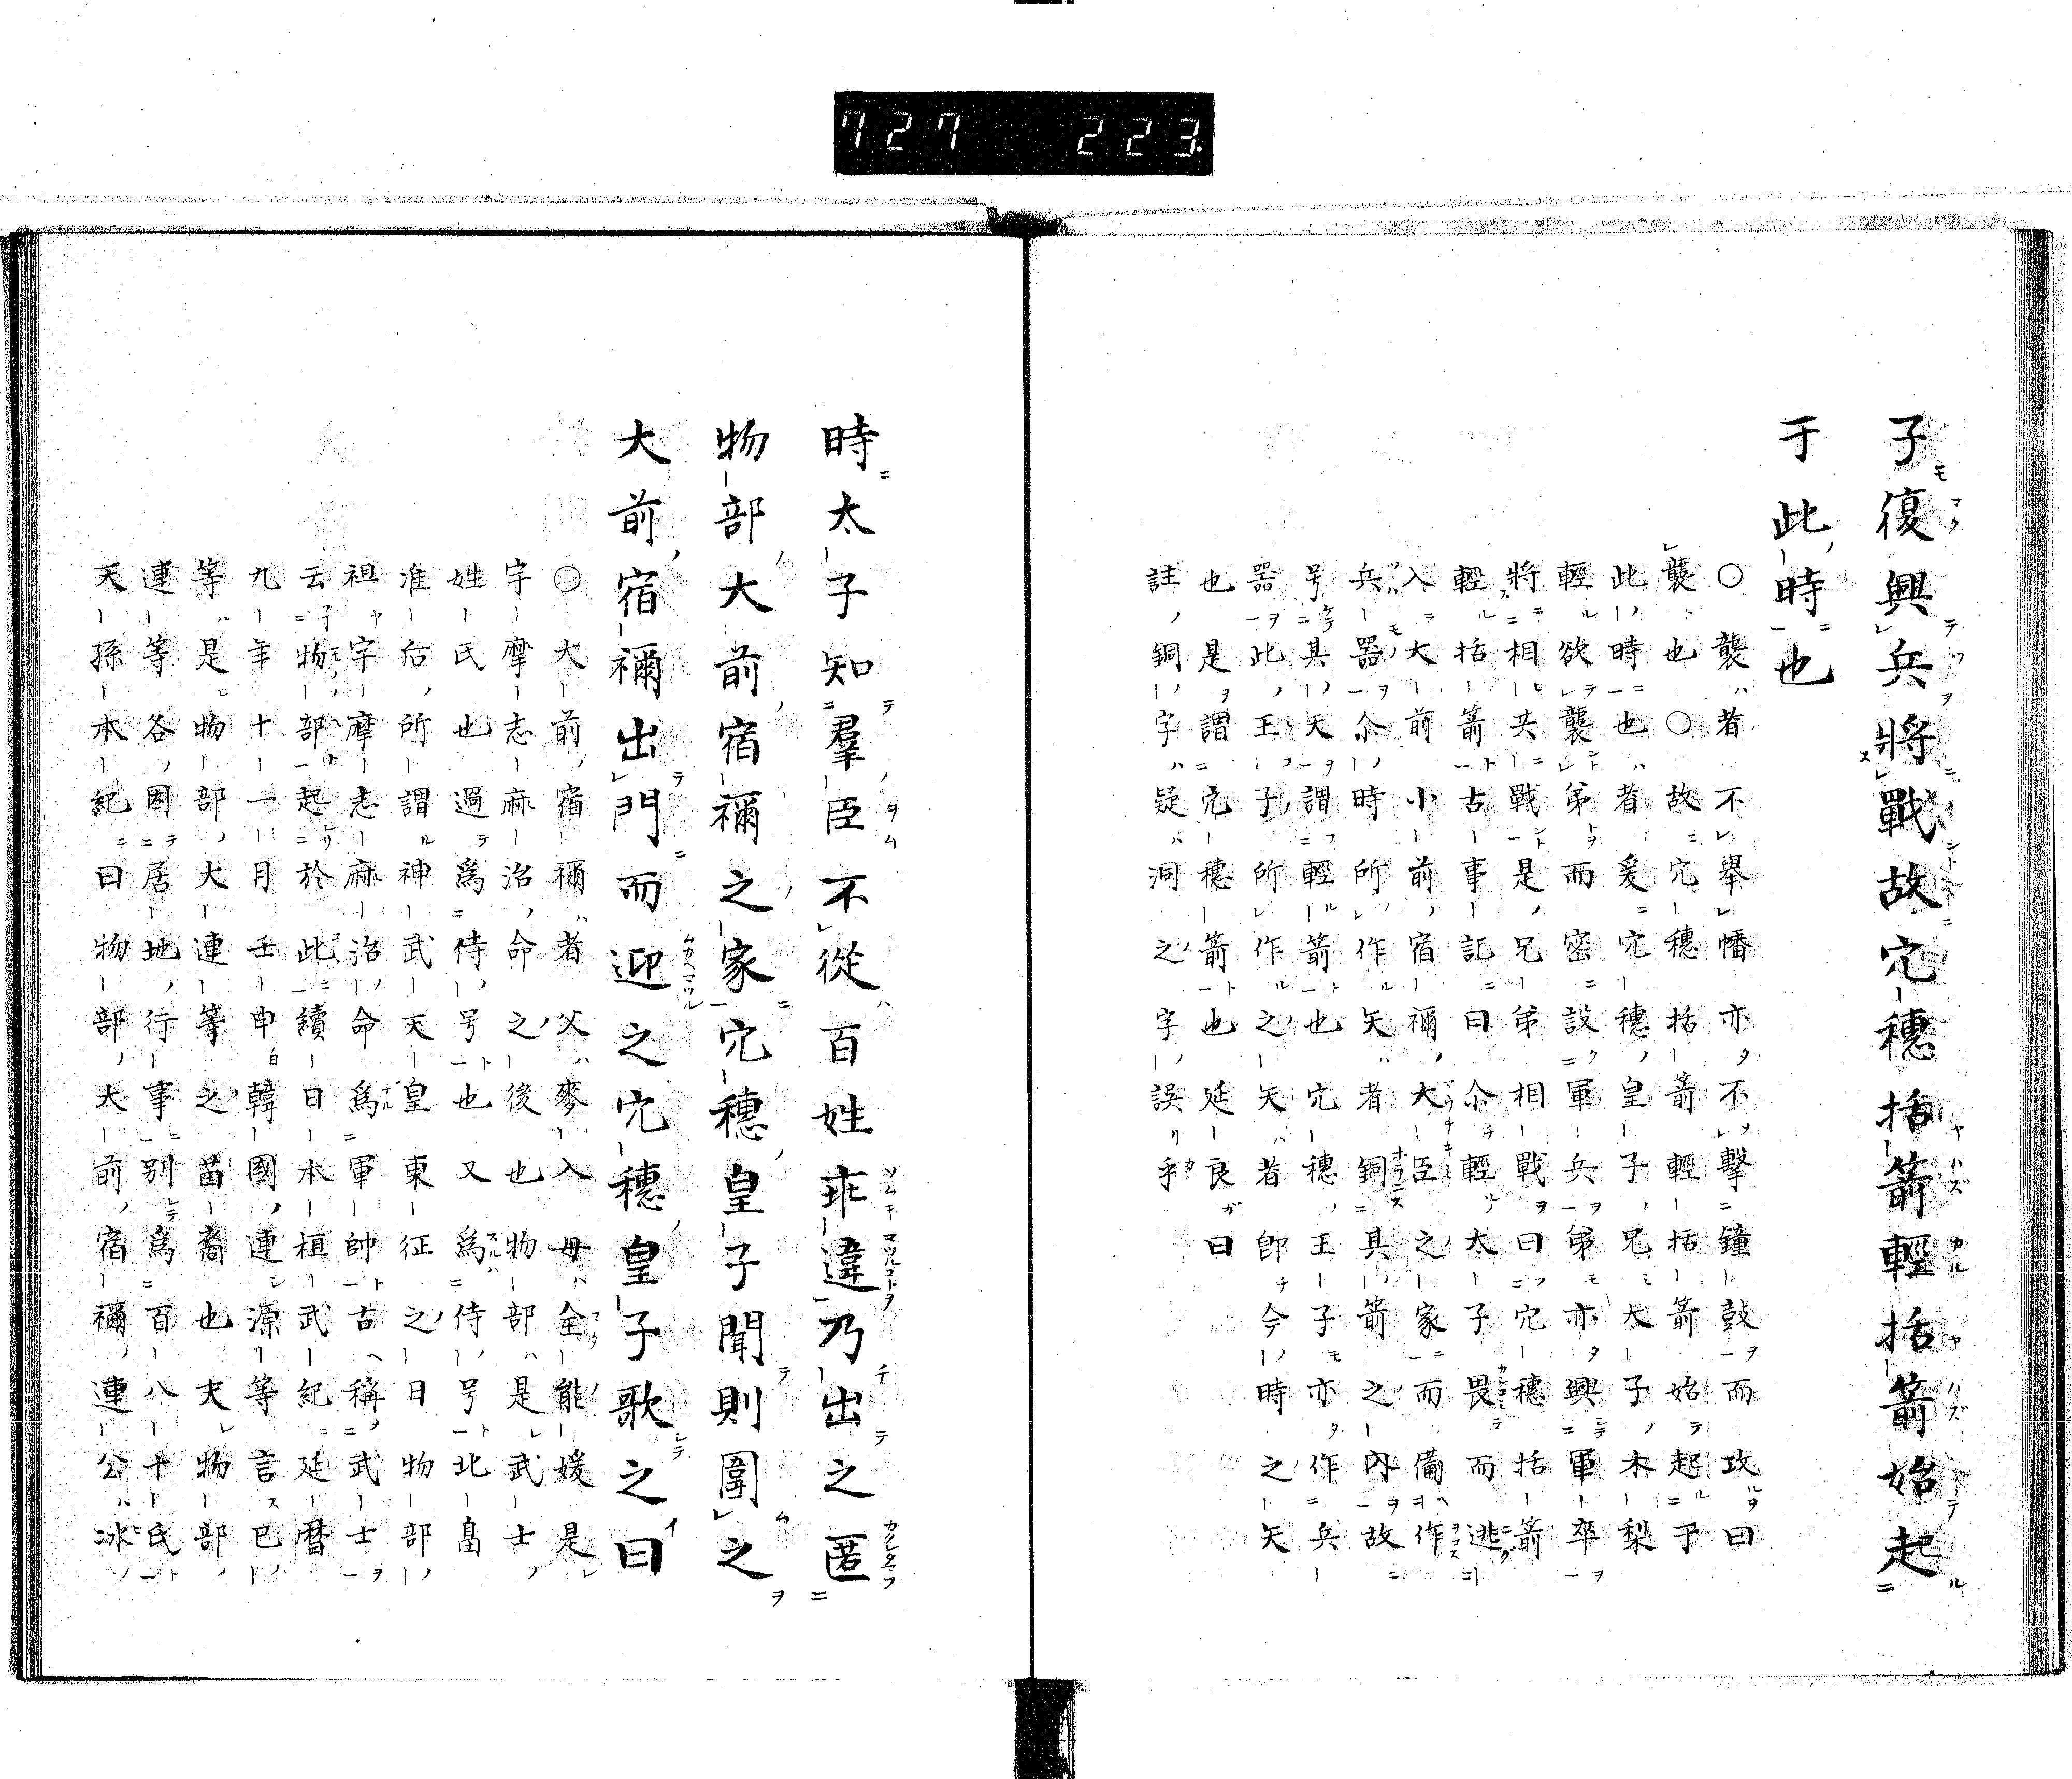 727 223
子復興兵將戰故穴穗括箭輕括箭始起
于此時也
○襲者不舉幡亦不擊鐘鼓而攻曰
襲也○故穴穗括箭輕括箭始起于
此時也者爰穴穗皇子兄太子木梨
輕欲襲弟而密設軍兵弟亦興軍卒
將相共戰是兄弟相戰曰穴穗括箭
輕括箭古事記曰尒輕太子畏而逃
入大前小前宿禰大臣之家而備作
兵器尒時所作矢者銅其箭之內故
号其矢謂輕箭也穴穗王子亦作兵
器此王子所作之矢者卽今時之矢
也是謂穴穗箭也延良曰
註銅字疑洞之字誤乎
時太子知羣臣不從百姓乖違乃出之匿
物部大前宿禰之家穴穗皇子聞則圍之
大前宿禰出門而迎之穴穗皇子歌之曰
○大前宿禰者父麥入母全能媛是
宇摩志麻治命之後也物部是武士
姓氏也過爲侍号也又爲侍号北畠
准后所謂神武天皇東征之日物部
祖宇摩志麻治命爲軍帥古稱武士
云物部起於此續日本桓武紀延曆
九年十一月壬申韓國連源等言已
等是物部大連等之苗裔也夫物部
連等各因居地行事別爲百八十氏
天孫本紀曰物部大前宿禰連公冰